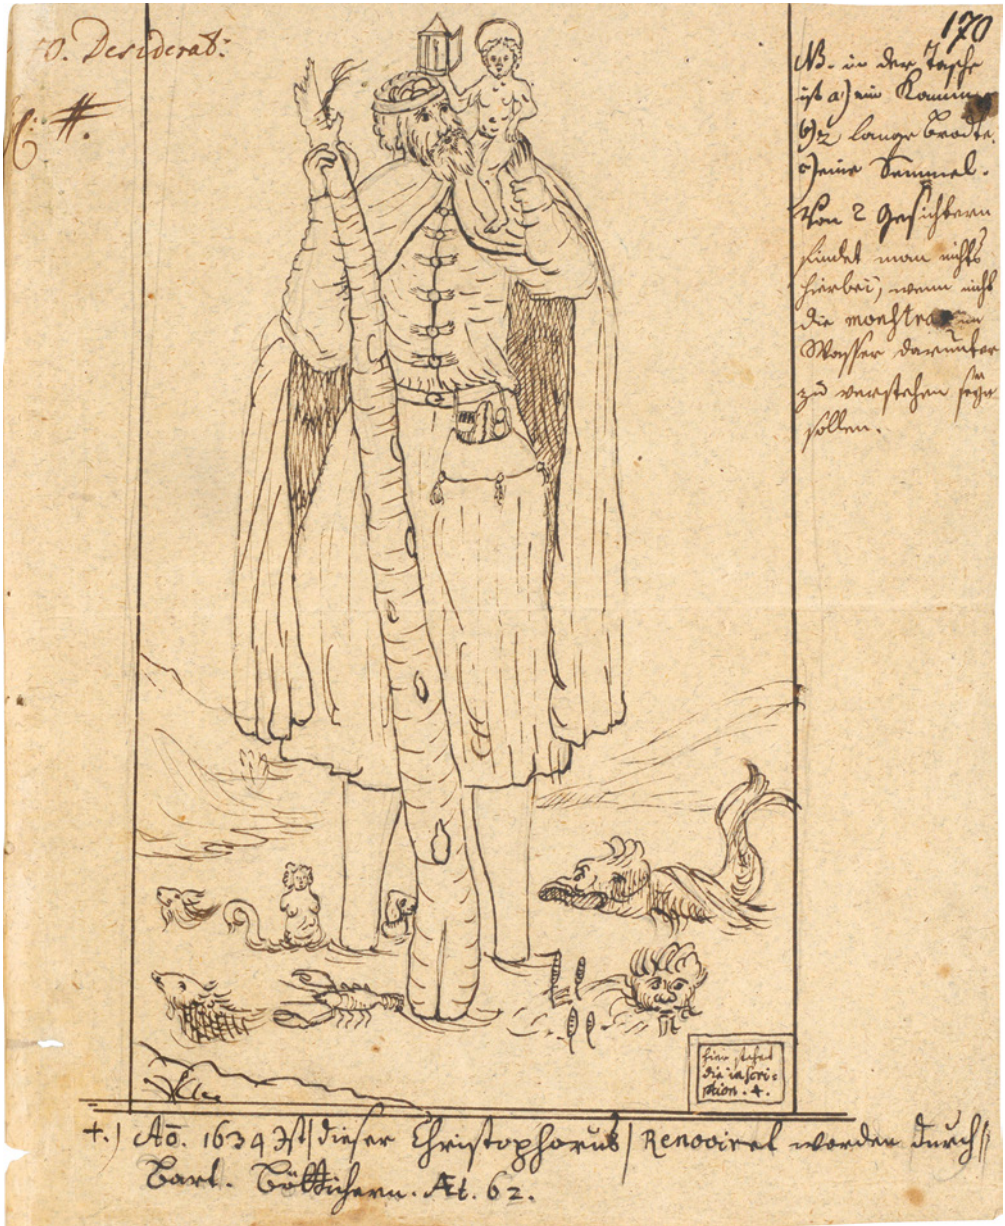 10. Desiderat:
#.
170
NB. in der Tasche
ist a) ein Kamm
b) 2 lange Brodte.
c) eine Semmel.
Von 2 Gesichtern
findet man nichts
hierbei, wenn nicht
die monstra im
Wasser darunter
zu verstehen seyn
sollen.
hier stehet
die inscri-
ption. +.
+.) Aō. 1634 Ist / dieser Christophorus / Renoviret worden durch //
Bart. Böttichern. Æt. 62.